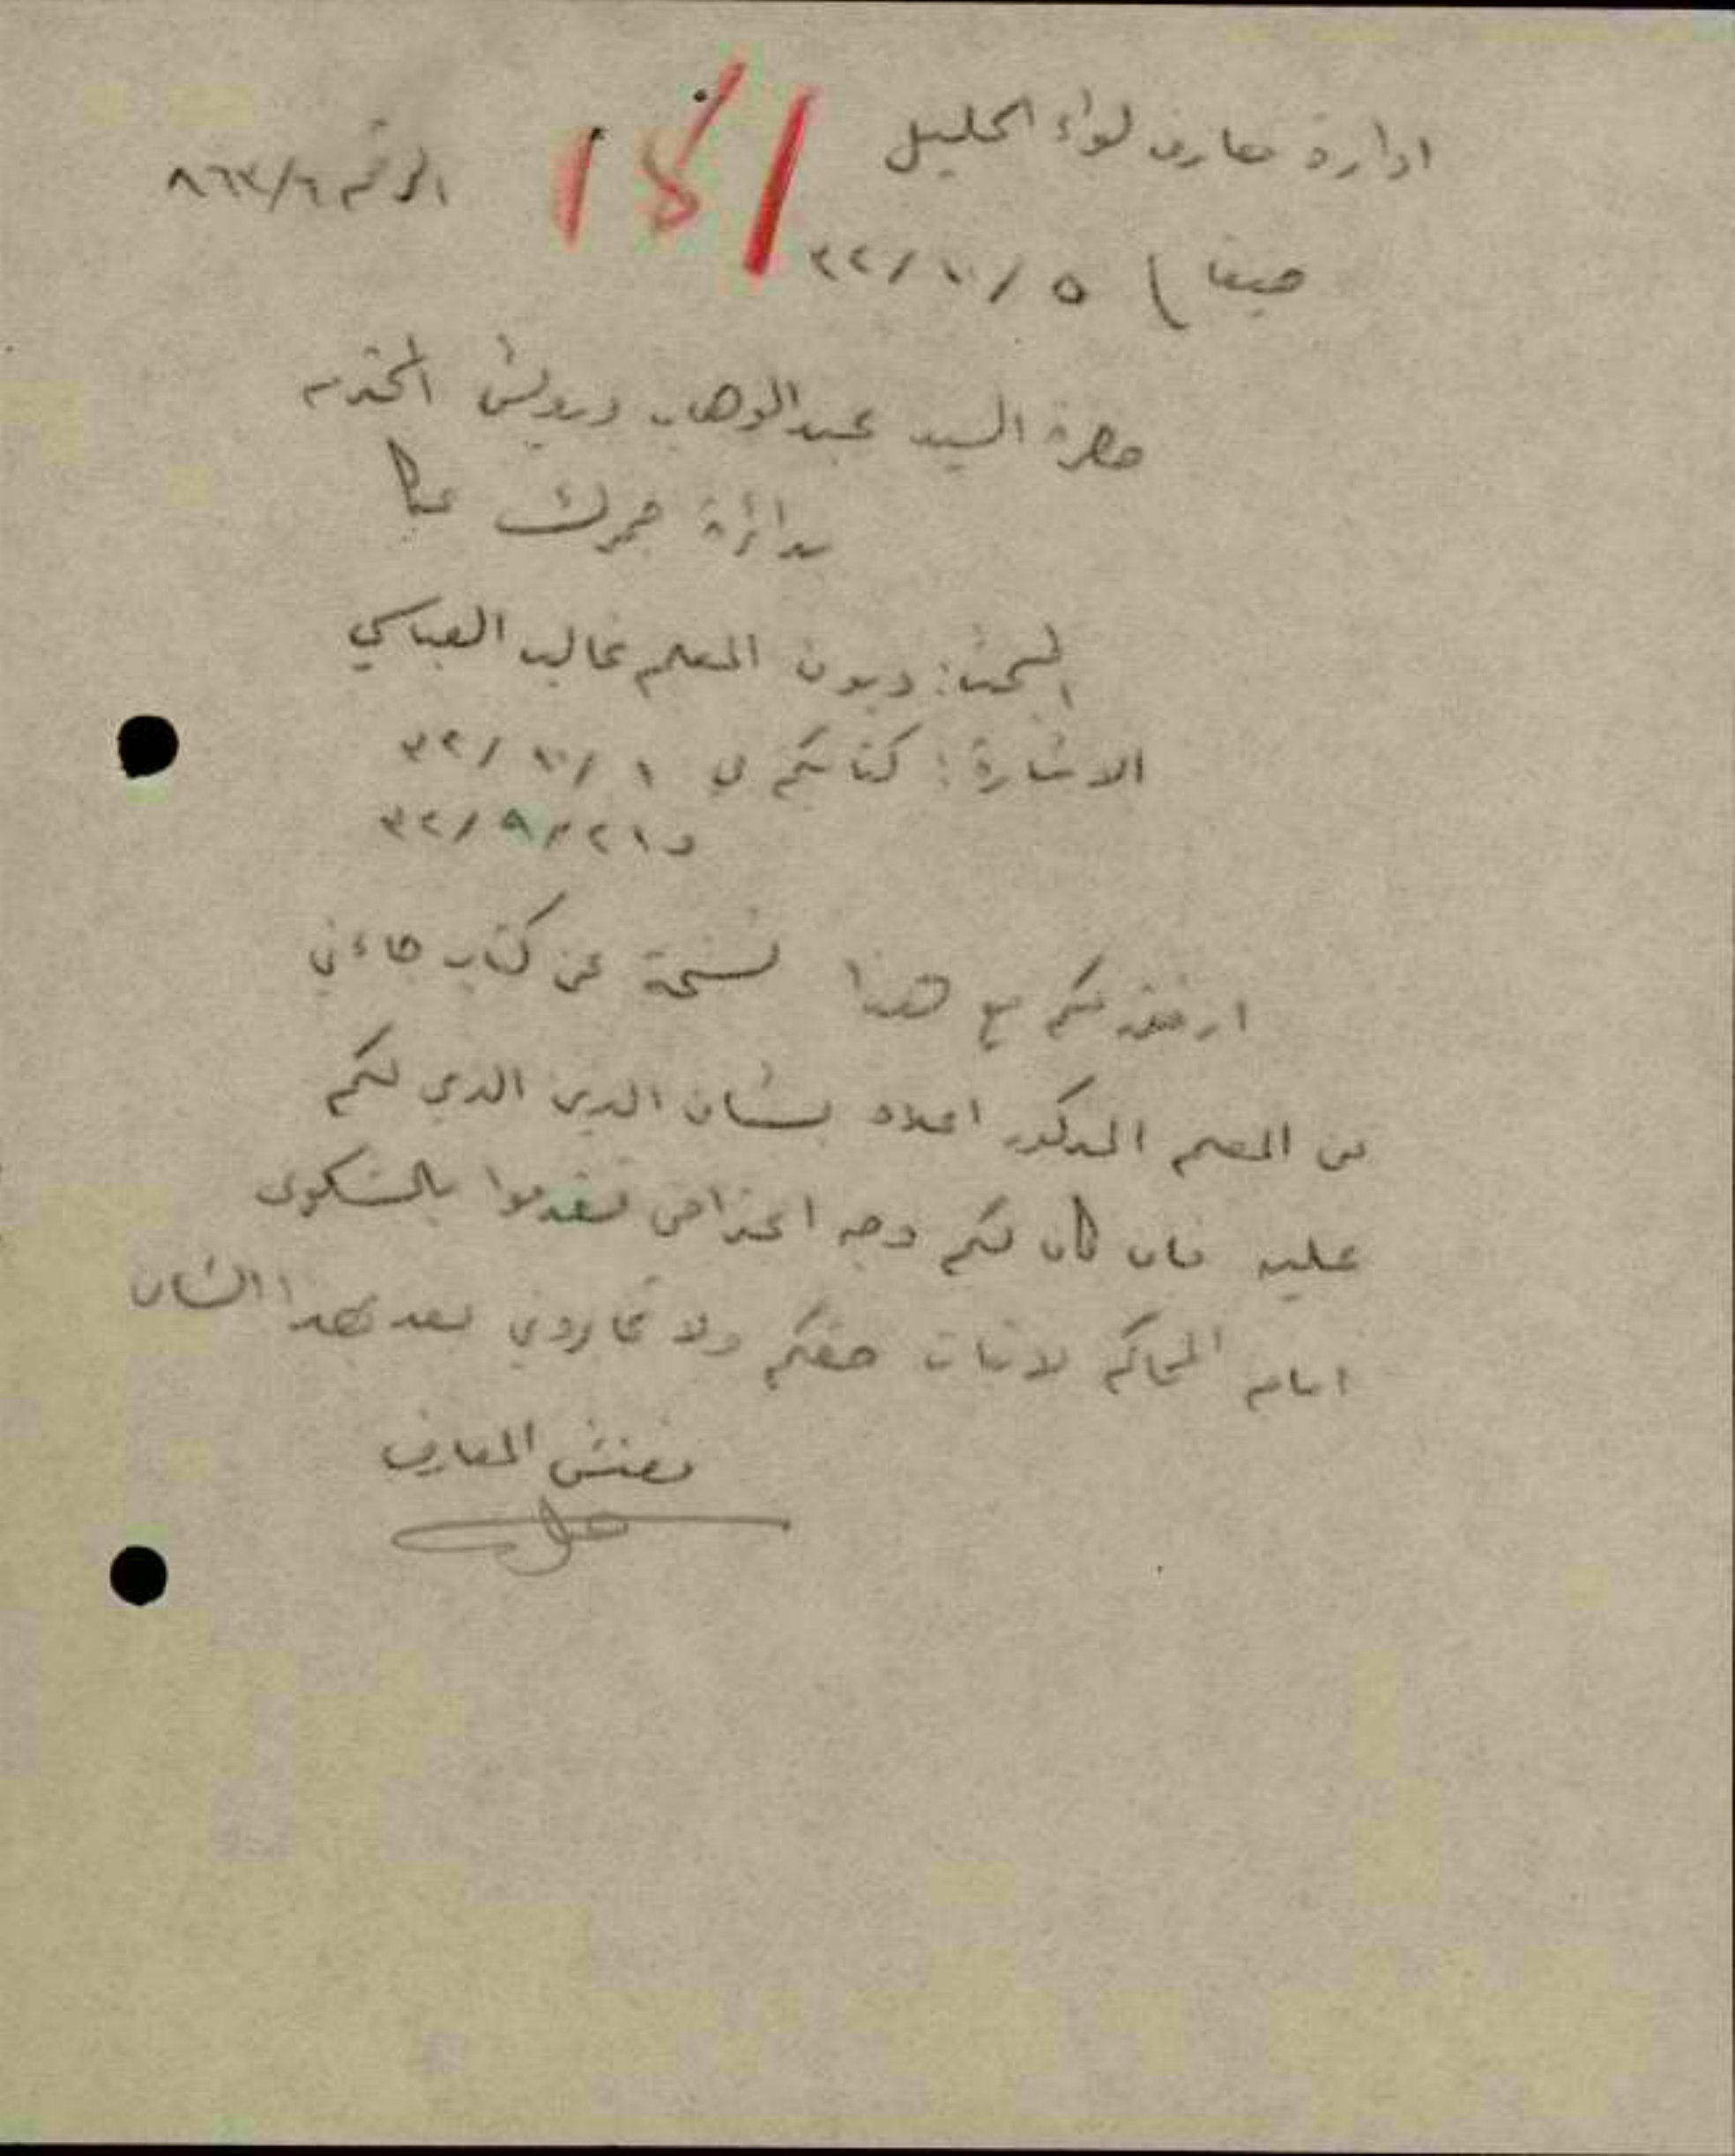 ادارة معارف لواء الجليل
الرقم ٨٦٣/٦
حيفا ) ٥ /١٠/ ٣٢
حضرة السيد عبدالوهاب درويش المحترم
بدائرة جمرك عكا
البحث: ديون المعلم غالب العباسي
الاشارة: كتابكم في ١ /١٠/ ٣٢
و٢١/ ٩/ ٣٢
ارفق لكم مع هذا نسخة عن كتاب جاءني
من المعلم المذكور اعلاه بشان الدين الذي لكم
عليه فان كان لكم وجه اعتراض فتقدموا بالشكوى
امام المحاكم لاثبات حقكم ولا تخابروني بعد بهذا الشان
مفتش المعارف